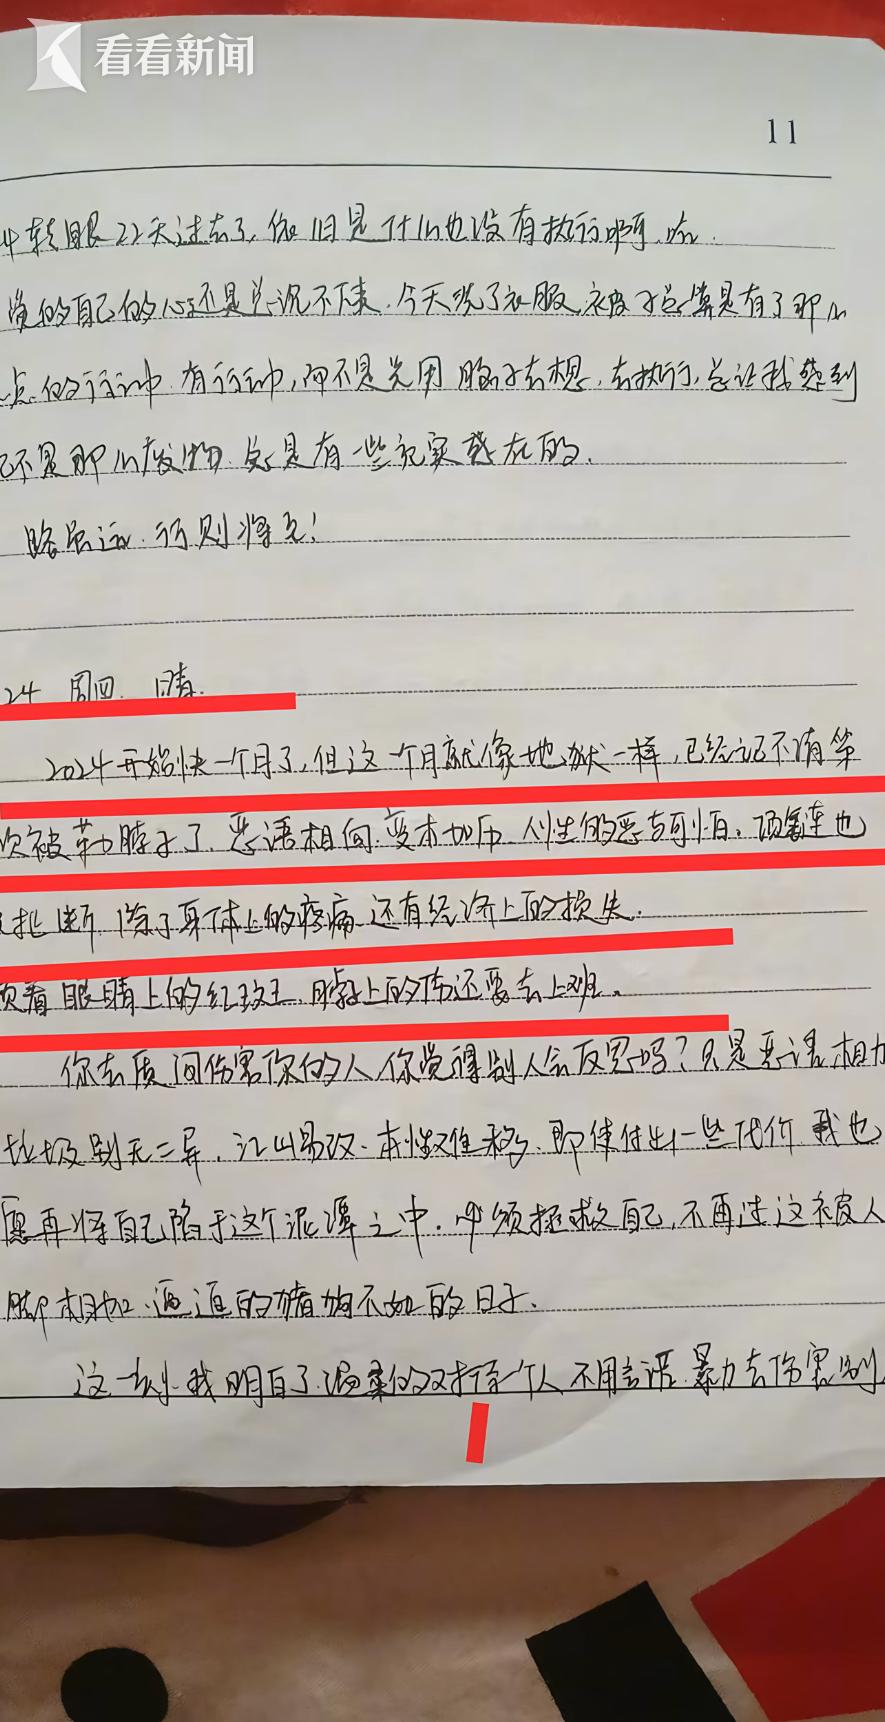 看看新闻
11
转眼22天过去了,依旧是什么也没有执行啊,哈.
觉的自己的心还是总沉不下来.今天洗了衣服,被子总算是有了那么
点的行动.有行动,而不是光用脑子去想,去执行,总让我感到
己不是那么废物.总是有一些记实感在的.
路虽远.行则将至!
24 周四. 晴.
2024开始快一个月了,但这一个月就像地狱一样,已经记不清第
次被勒脖子了.恶语相向.变本加厉.人性的恶与可怕.项链也
扯断.除了身体上的疼痛.还有经济上的损失.
顶着眼睛上的红斑.脖子上的伤还要去上班.
你去质问伤害你的人,你觉得别人会反思吗?只是恶语相力
垃圾到无二异.江山易改.本性难移.即使付出一些代价 我也
愿再将自己陷于这个泥潭之中.必须拯救自己,不再过这被人
脚相加.逼迫的猪狗不如的日子.
这一刻.我明白了.温柔的对待一个人 不用言语.暴力去伤害别